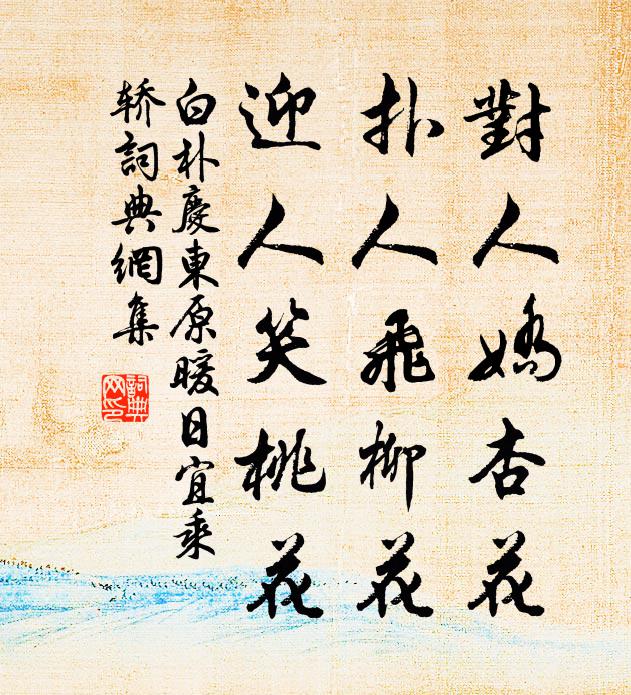 對人嬌杏花
扑人飛柳花
迎人笑桃花
白朴慶東原暖日宜乘
轿詞典網集
詞典网印